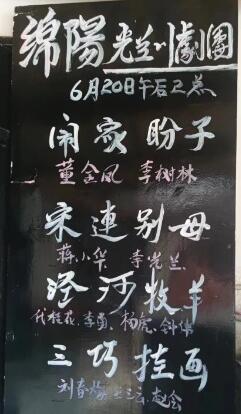 綿陽光兰川劇團
6月20日午后2点
闹家盼子
董金凤 李树林
宋連别母
蒋小华、李光兰、
泾河牧羊
代桂花、李勇、杨虎、
三巧挂画
刘春梅、赵会